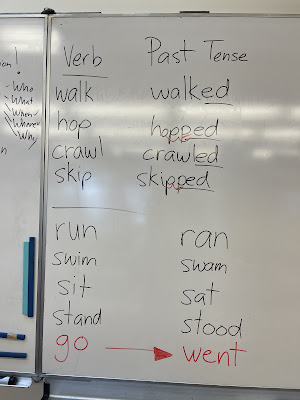 ion!
- Who
- What
- When
- Where
- Why
n
Verb Past Tense
walk walked
hop hopped
crawl crawled
skip skipped
run ran
swim swam
sit sat
stand stood
go → went